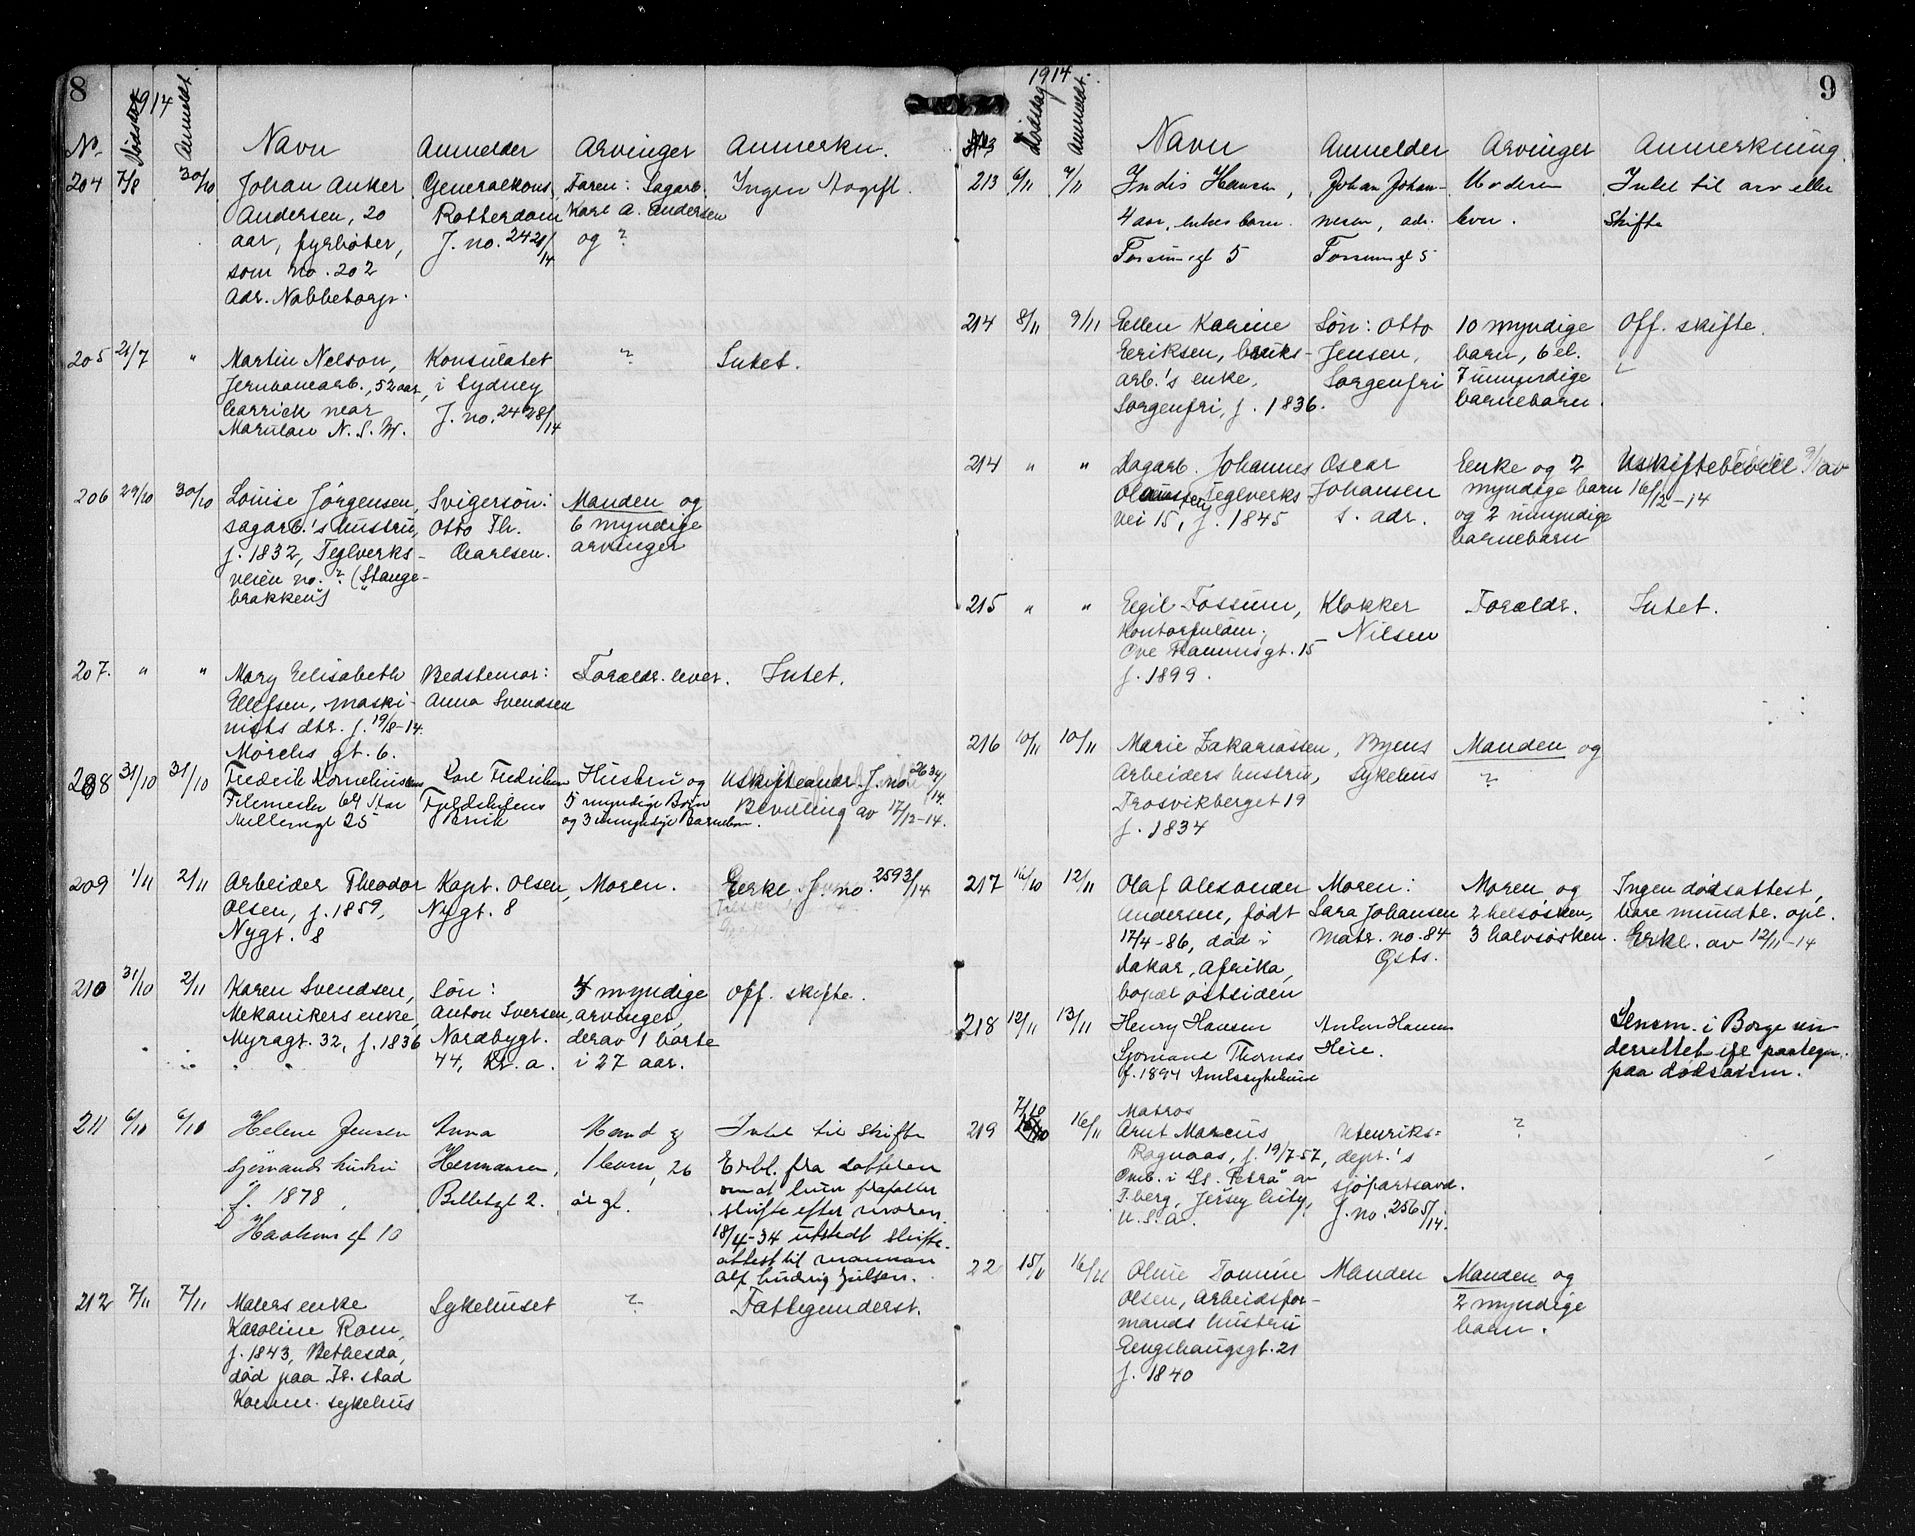 8
1914
No. Dødsdag Anmeldt Navn Anmelder Arvinger Anmerkn.
204 7/8 30/10 Johan Anker Generalkons. Faren: Sagarb. Ingen Avgift.
Andersen, 20 Rotterdam Karl A. Andersen
aar, fyrbøter, J. no. 2421/14 og ?
som no. 202
Adr. Nabbetorp.
205 21/7 " Martin Nelson, Konsulatet ? Intet.
Jernbanearb., 52 aar, i Sydney
Carrick near J. no. 2428/14
Marulan N.S.W.
206 29/10 30/10 Louise Jørgensen, Svigersøn: Manden og
sagarb.'s hustru, Otto Th. 6 myndige
f. 1832, Teglverks- Carlsen. arvinger
veien no. ? (Stange-
brakken")
207. " " Mary Elisabeth Bedstemor: Forældr. lever. Intet.
Ellefsen, maski- Anna Svendsen
nists dtr. f. 19/8-14.
Mørchs gt. 6.
208 31/10 31/10 Fredrik Kornelius Karl Fredriksen Hustru og Uskifteandr. J. no. 2634/14.
Filemester 64 Aar Fjeldskilens 5 myndige Børn Bevilling av 17/12-14.
Mellemgt 25 Bruk og 3 umyndige Barnebørn.
209 1/11 2/11 Arbeider Theodor Kapt. Olsen, Moren. Erkl. J. no. 2593/14
Olsen, f. 1859, Nygt. 8
Nygt. 8
210 31/10 2/11 Karen Svendsen, Søn: 4 myndige Off. skifte.
Mekanikers enke, Anton Iversen, arvinger,
Myragt. 32, f. 1836 Nordbygt. derav 1 borte
44, Kr.a. i 27 aar.
211 6/10 6/10 Helene Jensen Anna Mand og Intet til skifte
sjømands hustru Hermansen, 1 barn, 26 Erkl. fra datteren
f. 1878 Billetgt 2. år gl. om at hun frafaller
Haakons gt 10 skifte efter moren.
18/4-34 utstedt skifte-
attest til mannen
Alf Ludvig Julsen.
212 7/11 7/11 Malers enke Sykehuset ? Fattigunderst.
Karoline Rom,
f. 1843, Bethesda,
død paa Fr.stad
Komm. sykehus
9
1914
Dødsdag Anmeldt. Navn Anmelder Arvinger Anmerkning.
213 6/11 7/11 Indis Hansen, Johan Johan- Moderen Intet til arv eller
4 aar, enkes barn. nesen, adr. lever. Skifte
Fossumsgt 5 Fossumsgt 5
214 8/11 9/11 Ellen Karine Søn: Otto 10 myndige Off. skifte.
Eriksen, bruks- Jensen, barn, 6 el.
arb.'s enke, Sorgenfri 7 umyndige
Sorgenfri, f. 1836. barnebarn.
214 " " Dagarb. Johannes Oscar Enke og 2 Uskiftebevill av
Olaussen Teglverks Johansen myndige barn 16/12-14
vei 15, f. 1845 s. adr. og 2 umyndige
barnebarn
215 " " Egil Fossum, Klokker Forældr. Intet.
Kontorfuldm., Nilsen
Ove Ramms gt. 15
f. 1899.
216 10/11 10/11 Marie Zakariassen, Byens Manden og
Arbeiders hustru, sykehus ?
Trosvikberget 19
f. 1834
217 16/10 12/11 Olaf Alexander Moren: Moren og Ingen dødsattest,
Andersen, født Sara Johansen 2 helsøsken, bare mundtl. opl.
17/4-86, død i matr. no. 84 3 halvsøsken. Erkl. av 12/11-14
Dakar, Afrika, Gsts.
bopæl Østsiden
218 12/11 13/11 Henry Hansen Anton Hansen Lensm. i Borge un-
Sjømand Heie. derrettet ifl. paategn.
f. 1894 Amtssykehuset paa dødsanm.
7/10
219 16/11 Matros
Arnt Marcus Utenriks- ?
Ragnaas, f. 19/7-57, dept.'s
Omb. i "Petra" av sjøfartsavd.
T.berg, Jersey City, J. no. 2565/14.
U.S.A.
22 15/11 16/11 Oline Tomine Manden Manden og
Olsen, Arbeidsfor- 2 myndige
mands hustru barn.
Enghaugsgt. 21
f. 1840